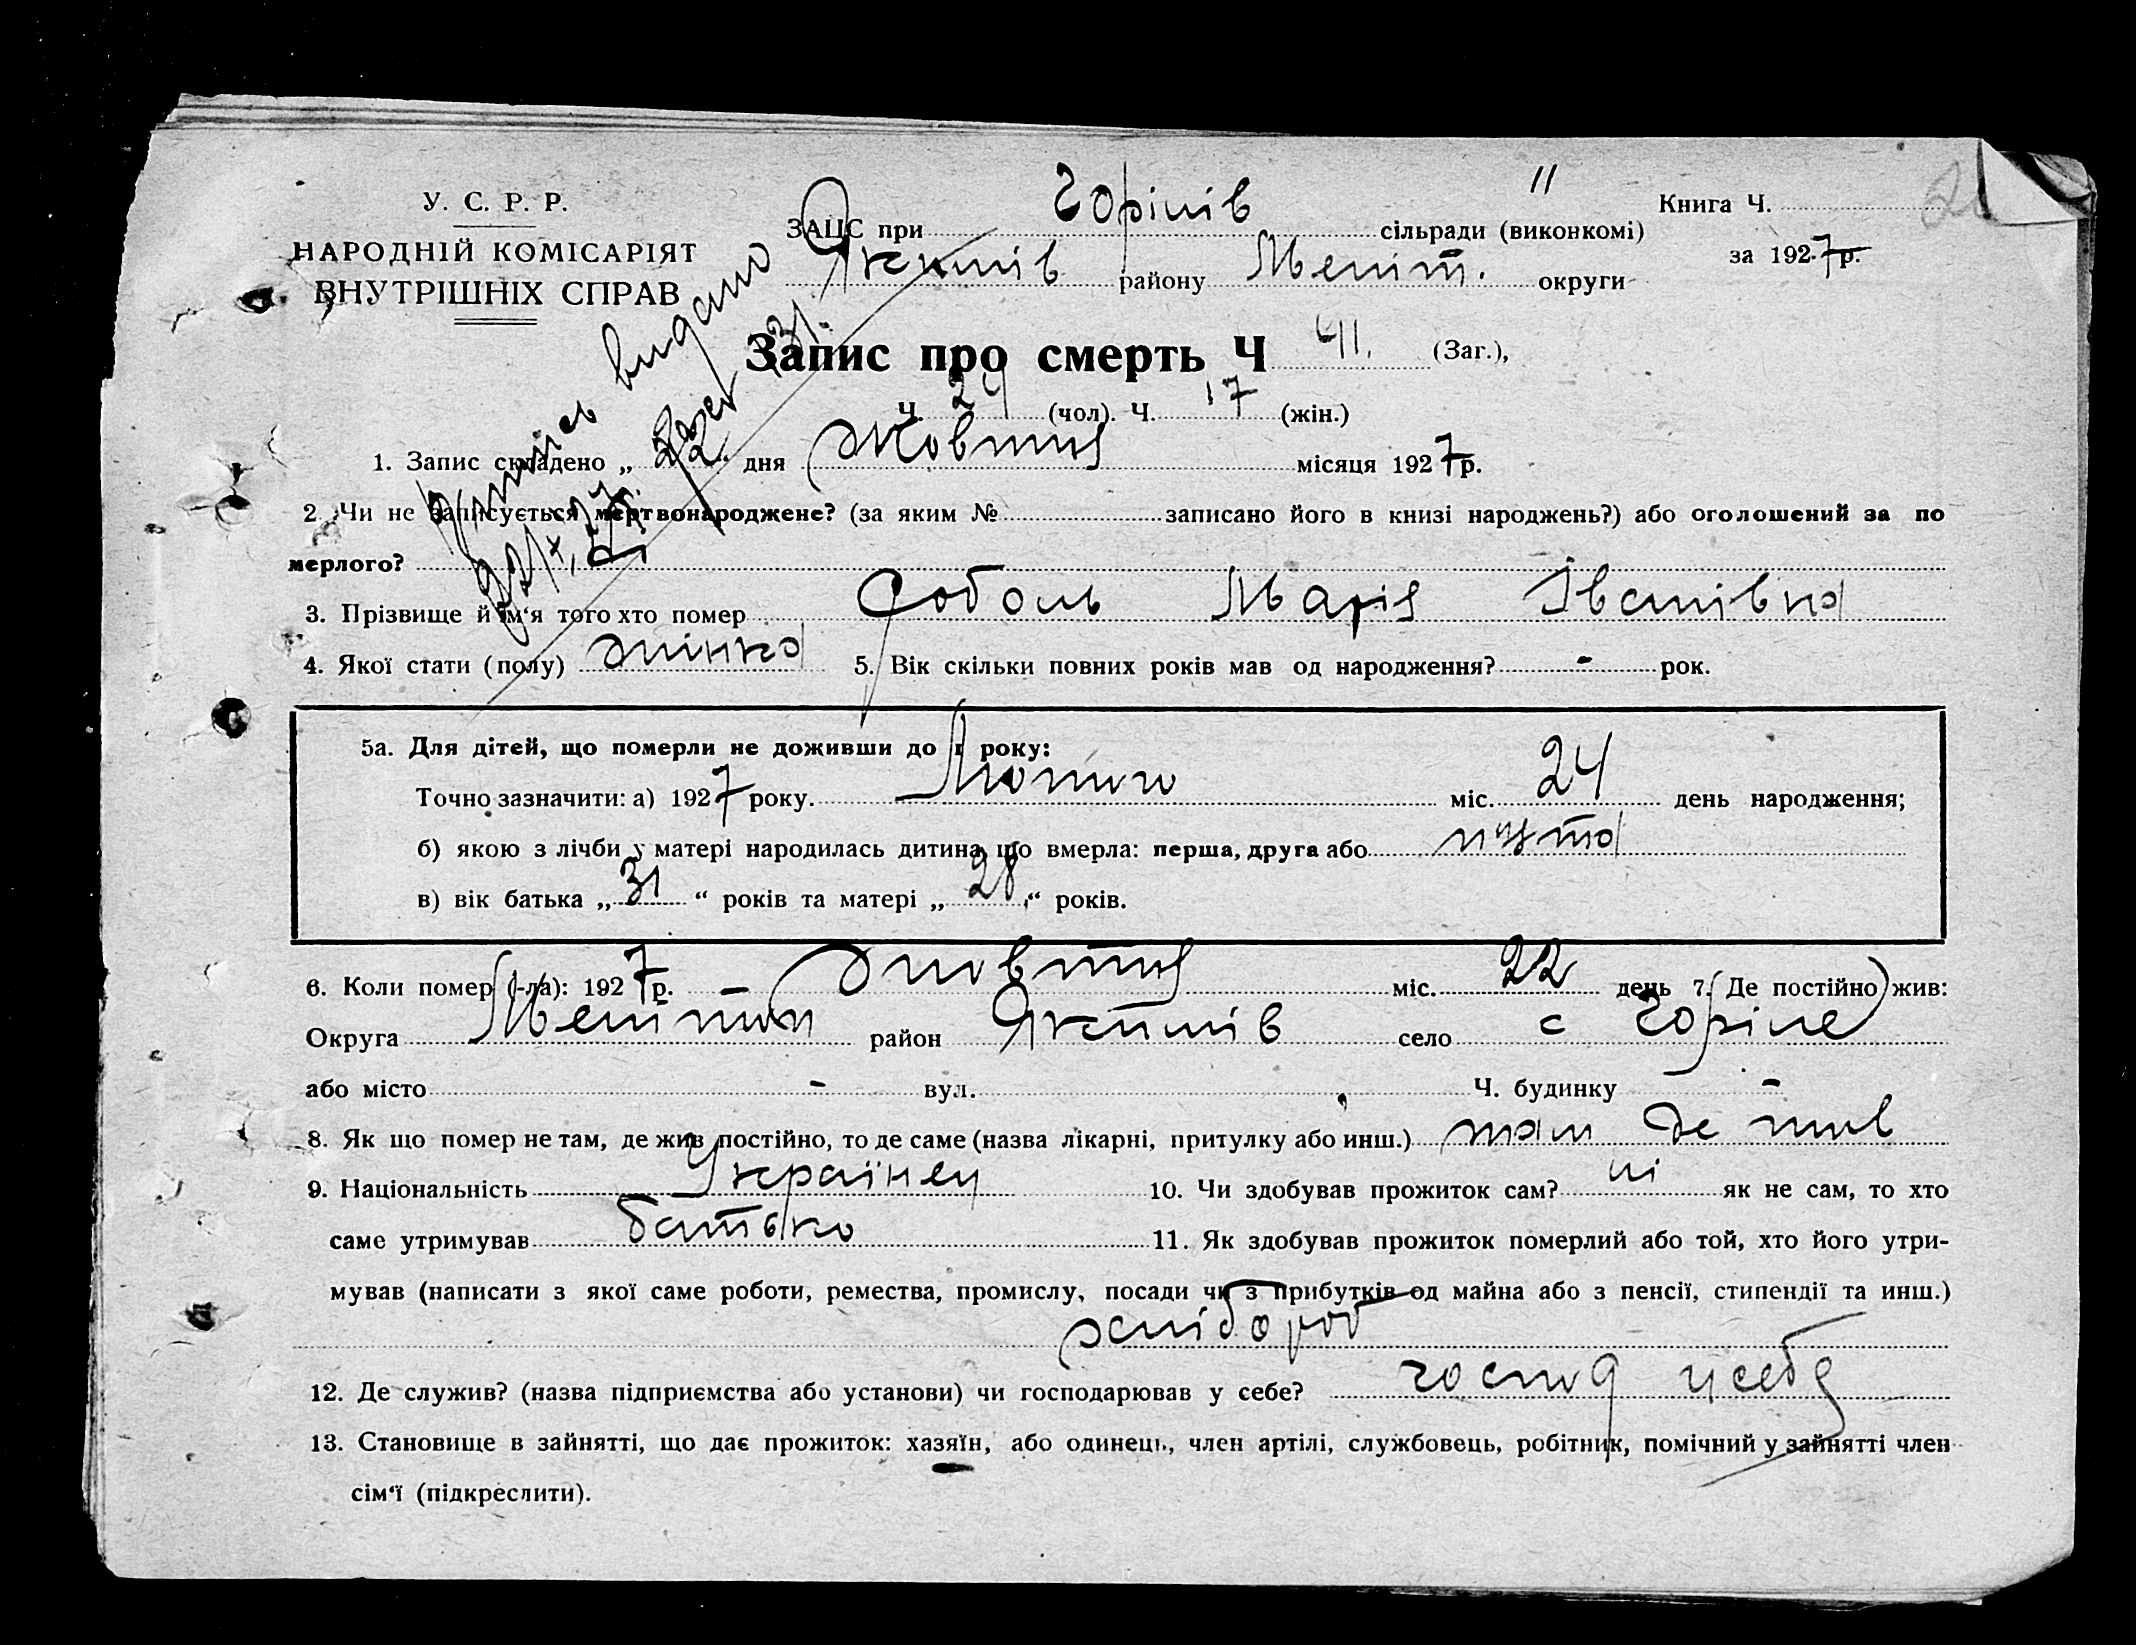 У. С. Р. Р.
НАРОДНІЙ КОМІСАРІЯТ
ВНУТРІШНІХ СПРАВ
11
ЗАЦС при Горілів сільради (виконкомі)
Якимів району Меліт. округи
Книга Ч.
за 1927р.
Запис про смерть Ч 41. (Заг.),
Ч. 24 (чол). Ч. 17 (жін.)
видано
1. Запис складено „22“ дня Жовтня місяця 1927р.
2. Чи не записується мертвонароджене? (за яким № записано його в книзі народжень?) або оголошений за по
мерлого?
3. Прізвище й їм‘я того хто помер Соболь Марія Іванівна
4. Якої стати (полу) жінка 5. Вік скільки повних років мав од народження? - рок.
5а. Для дітей, що померли не доживши до 1 року:
Точно зазначити: а) 1927 року. Лютого міс. 24 день народження;
б) якою з лічби у матері народилась дитина, що вмерла: перша, друга або пята
в) вік батька „31“ років та матері „28“ років.
6. Коли помер (-ла): 1927р. - Жовтня міс. 22 день 7. Де постійно жив:
Округа Мелітоп район Якимів село с Горіле
або місто - вул. Ч. будинку -
8. Як що помер не там, де жив постійно, то де саме (назва лікарні, притулку або инш.) там де жив
9. Національність Українец 10. Чи здобував прожиток сам? ні як не сам, то хто
саме утримував батько 11. Як здобував прожиток померлий або той, хто його утри-
мував (написати з якої саме роботи, ремества, промислу, посади чи з прибутків од майна або з пенсії, стипендії та инш.)
хлібороб
12. Де служив? (назва підприємства або установи) чи господарював у себе? господ у себя
13. Становище в зайнятті, що дає прожиток: хазяїн, або одинець, член артілі, службовець, робітник, помічний у зайнятті член
сім‘ї (підкреслити).